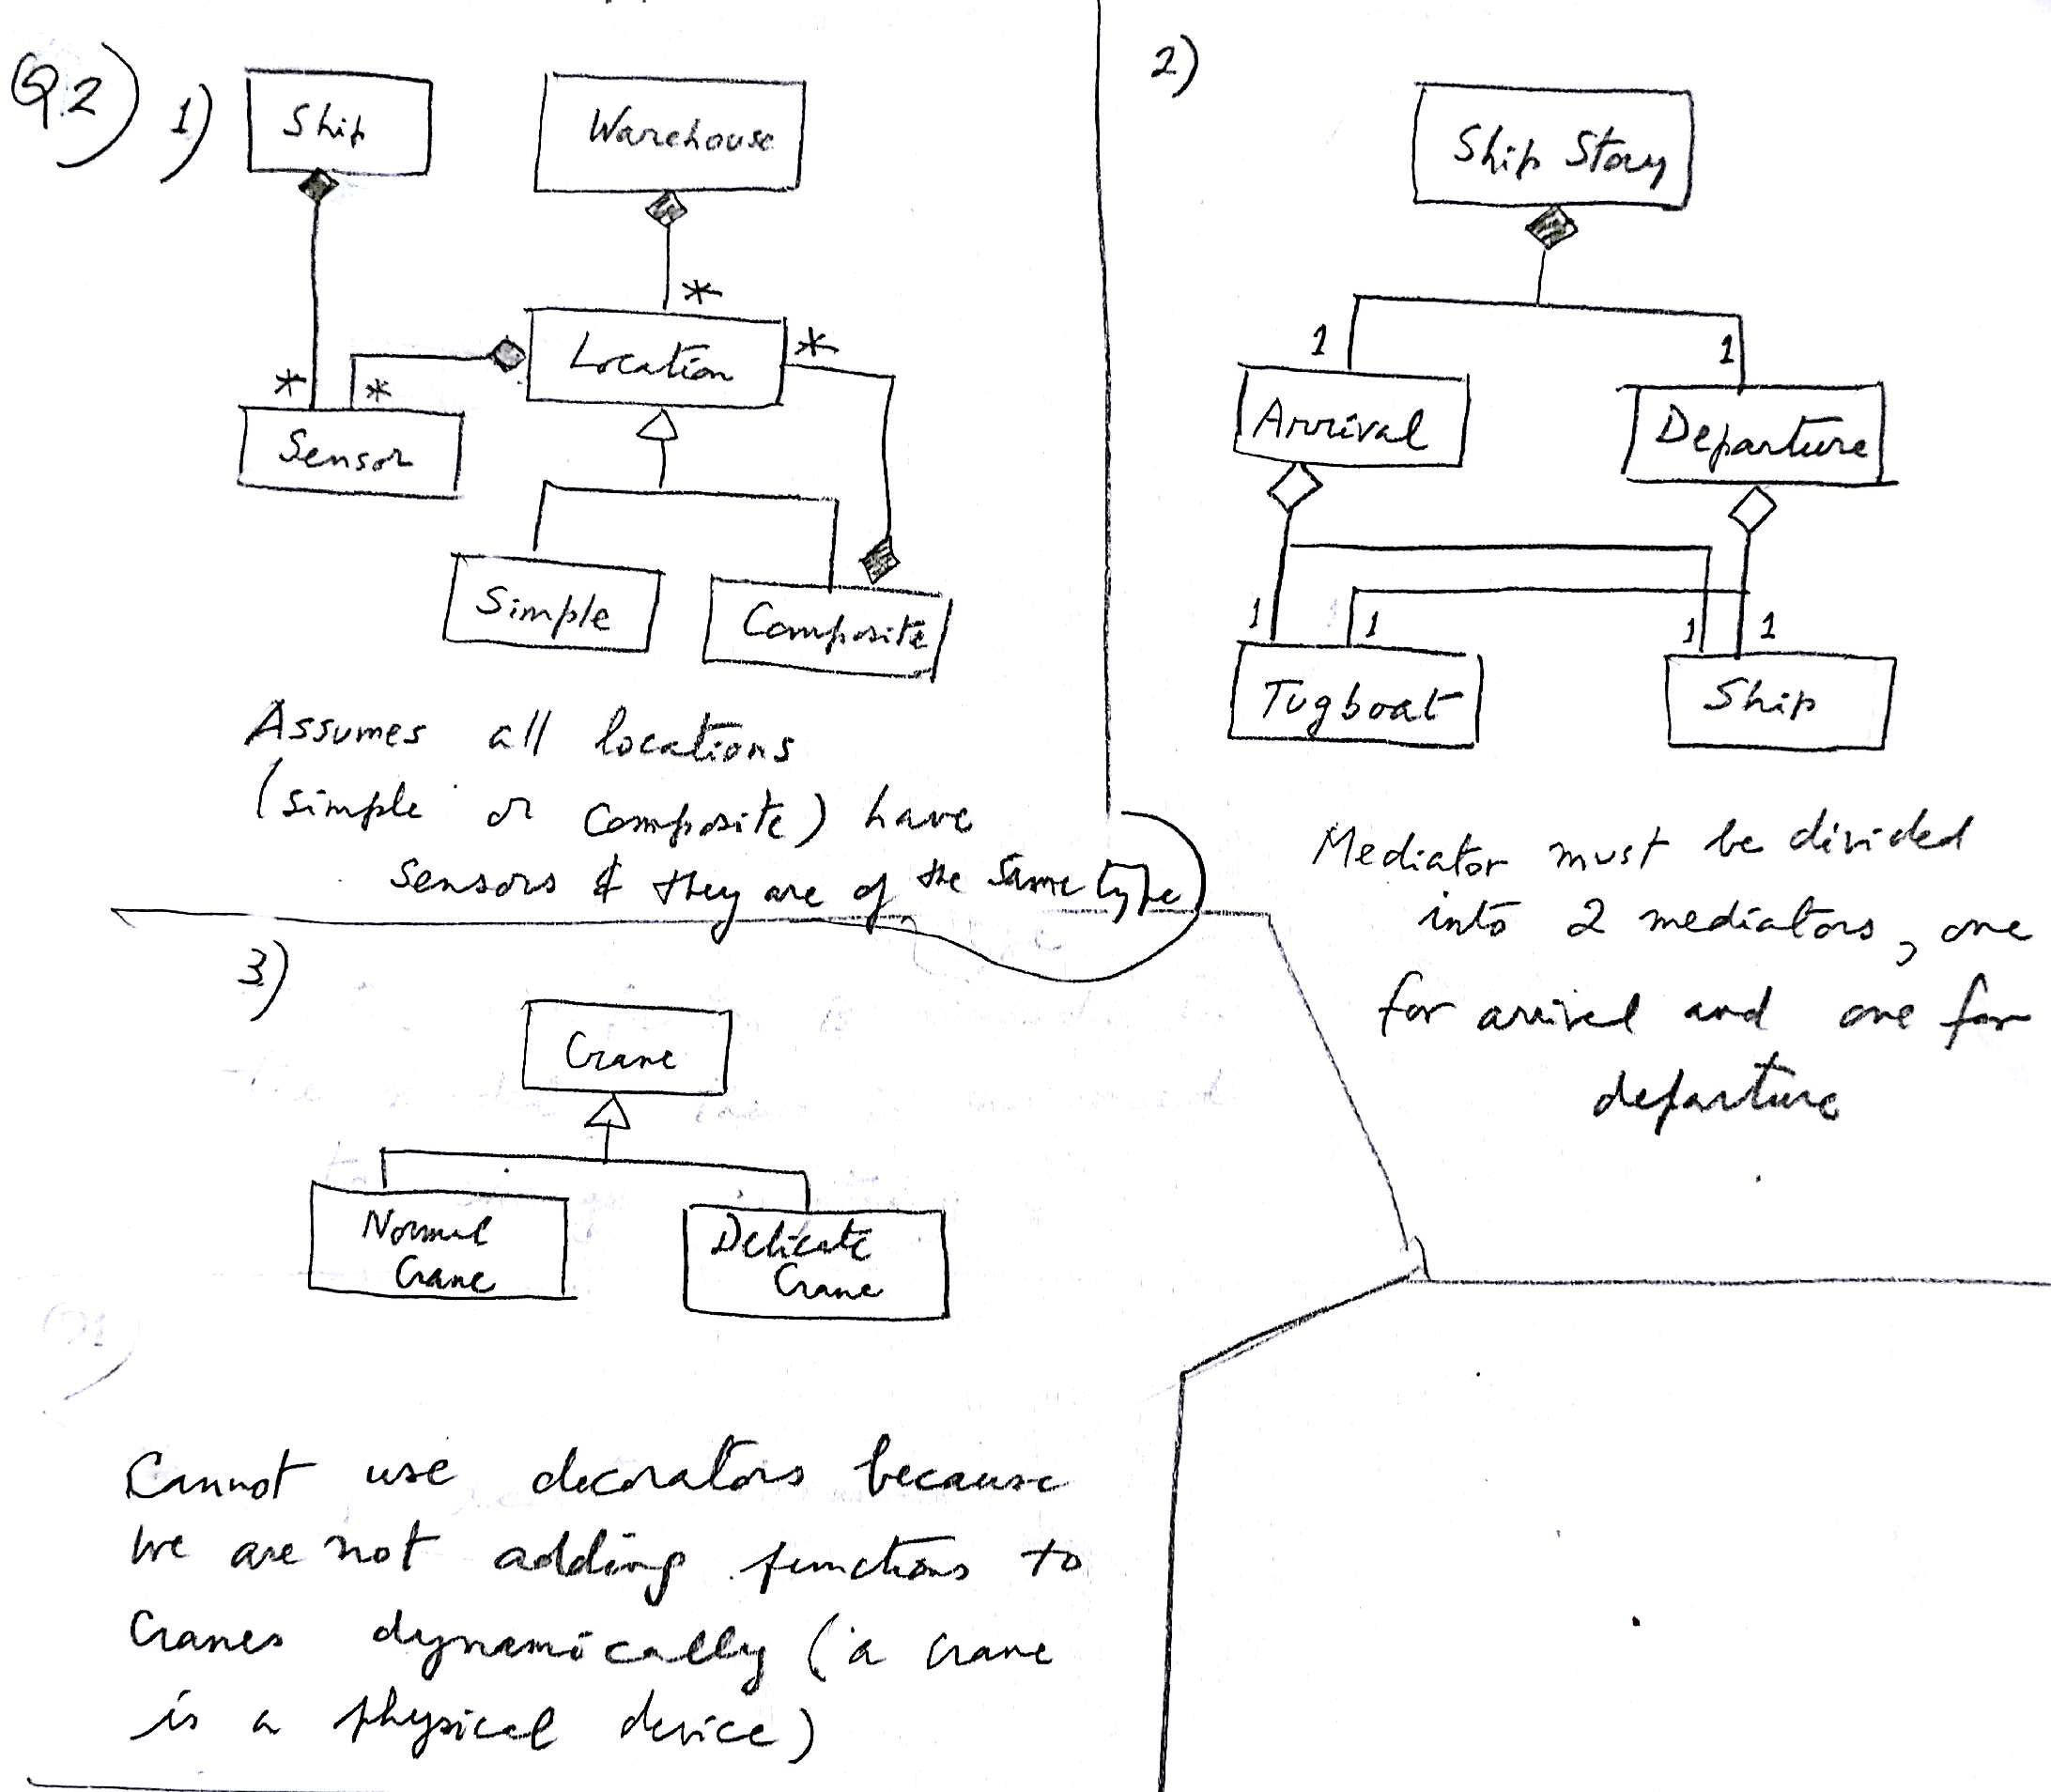 Q2) 1)
Ship
Warehouse
*
Location
*
* *
Sensor
Simple
Composite
Assumes all locations
(simple or composite) have
sensors & they are of the same type
2)
Ship Stay
1 1
Arrival
Departure
1 1 1 1
Tugboat
Ship
Mediator must be divided
into 2 mediators, one
for arrival and one for
departure
3)
Crane
Normal
Crane
Delicate
Crane
Cannot use decorators because
we are not adding functions to
cranes dynamically (a crane
is a physical device)